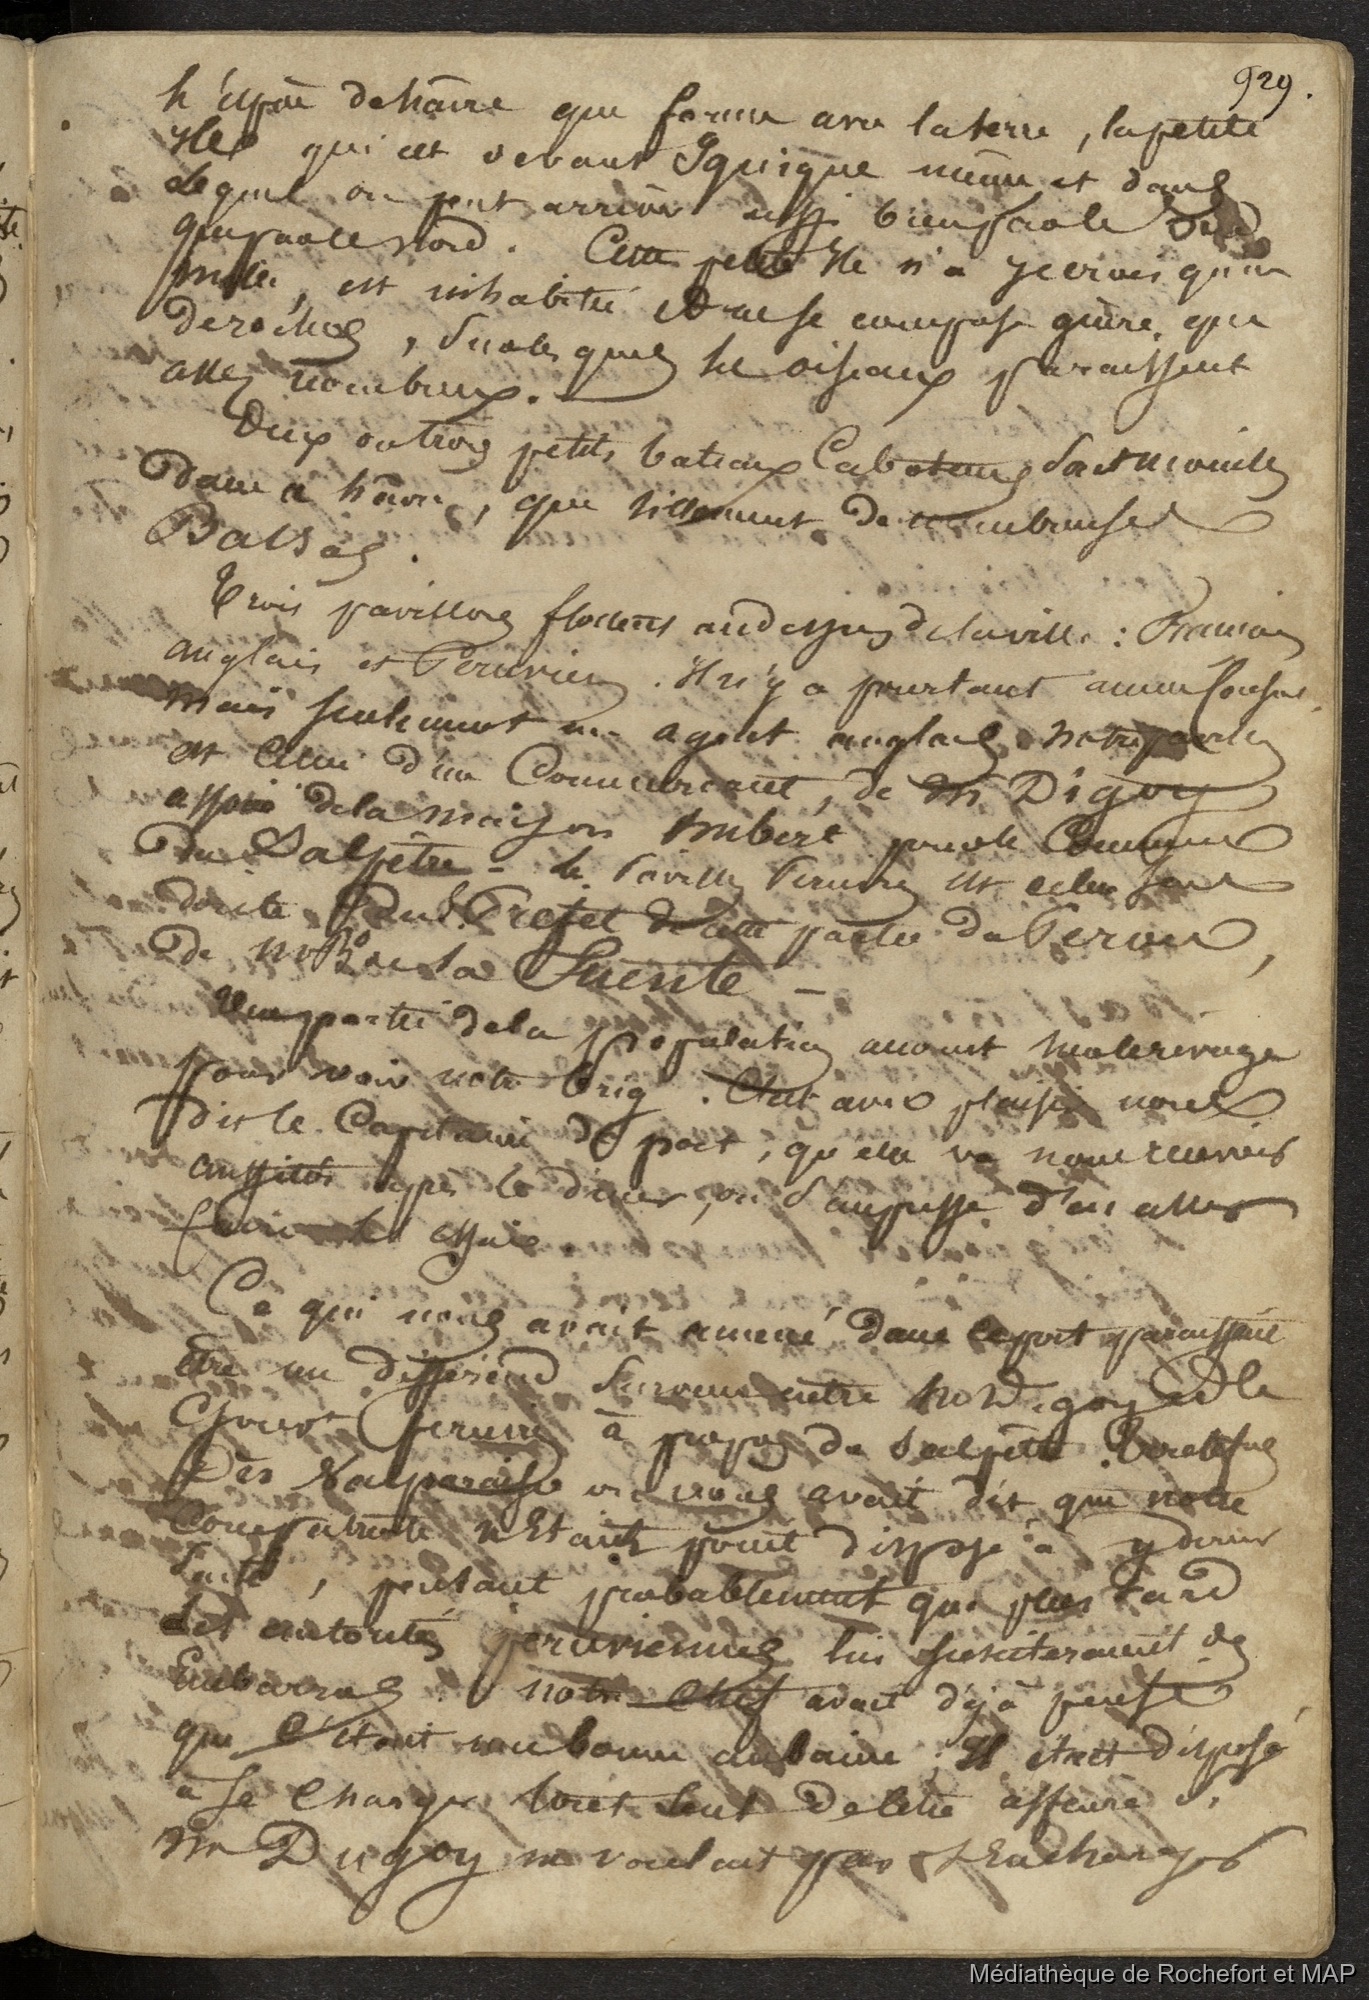 929.
L'espèce de hâvre que forme avec la terre, la petite
Ile qui est devant Iquique même et dans
lequel on peut arriver aussi bien par le Sud
que par le nord. Cette petite Ile n'a je crois qu'un
mille, est inhabitée et ne se compose guère que
de roches, sur lesquels les oiseaux paraissent
assez nombreux.
Deux ou trois petits bateaux Caboteurs sont mouillés
dans ce hâvre, que sillonnent de nombreuses
Balsas.
Trois pavillons flottent au dessus de la ville : Français
anglais et Péruvien. Il n'y a pourtant aucun Consul
mais seulement un agent anglais. Notre pavillon
est celui d'un Commerçant, de Mr Digoy
associé de la maison Imbert pour le Commerce
du Salpêtre - le Pavillon Péruvien est celui sans
doute du S. Préfet de cette partie du Pérou,
de Mr de la Fuente -
Une partie de la population accourt sur le rivage
pour voir notre brig. C'est avec plaisir nous
dit le Capitaine de port, qu'elle va nous recevoir
aussitôt après le dîner, on s'empresse d'en aller
faire l'essai.
Ce qui nous avait amené dans ce port paraissait
être un différend survenu entre Mr Digoy et le
Gouvert Péruvien à propos de salpêtre. Toutefois
Dès Valparaiso on nous avait dit que notre
Compatriote n'était point disposé à y donner
suite, pensant probablement que plus tard
les autorités péruviennes lui susciteraient des
Embarras. Notre Chef avait déjà pensé
que c'était une bonne aubaine ; Il était disposé
à se charger tout seul de cette affaire ;
Mr Digoy ne voulant pas s'en charger
Médiathèque de Rochefort et MAP